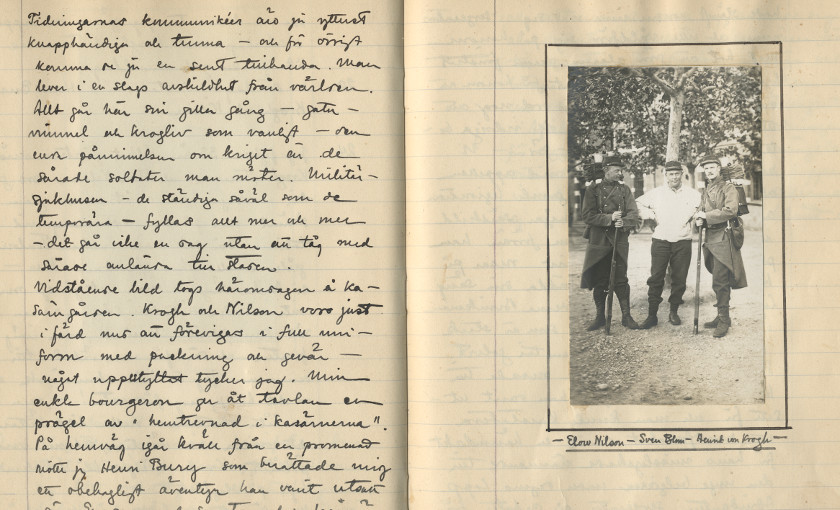 Tidningarnas kommunikéer äro ju ytterst
knapphändiga och tunna – och för övrigt
komma de ju en sent tillhanda. Man
lever i en slags avskildhet från världen.
Allt går här sin gilla gång – gatu-
vimmel och krogliv som vanligt – den
enda påminnelsen om kriget är de
sårade soldater man möter. Militär-
sjukhusen – de ständiga såväl som de
temporära – fyllas allt mer och mer
– det går icke en dag utan att tåg med
sårade anlända till staden.
Vidstående bild togs häromdagen å ka-
särngården. Krogh och Nilson voro just
i färd med att förevigas i full uni-
form med packning och gevär –
något uppstyltat tycker jag. Min
enkla bourgeron ger åt tavlan en
prägel av "hemtrevnad i kasärnerna".
På hemväg igår kväll från en promenad
mötte jag Henri Bury som berättade mig
ett obehagligt äventyr han varit utsatt
– Elow Nilson – Sven Blom – Henrik von Krogh –